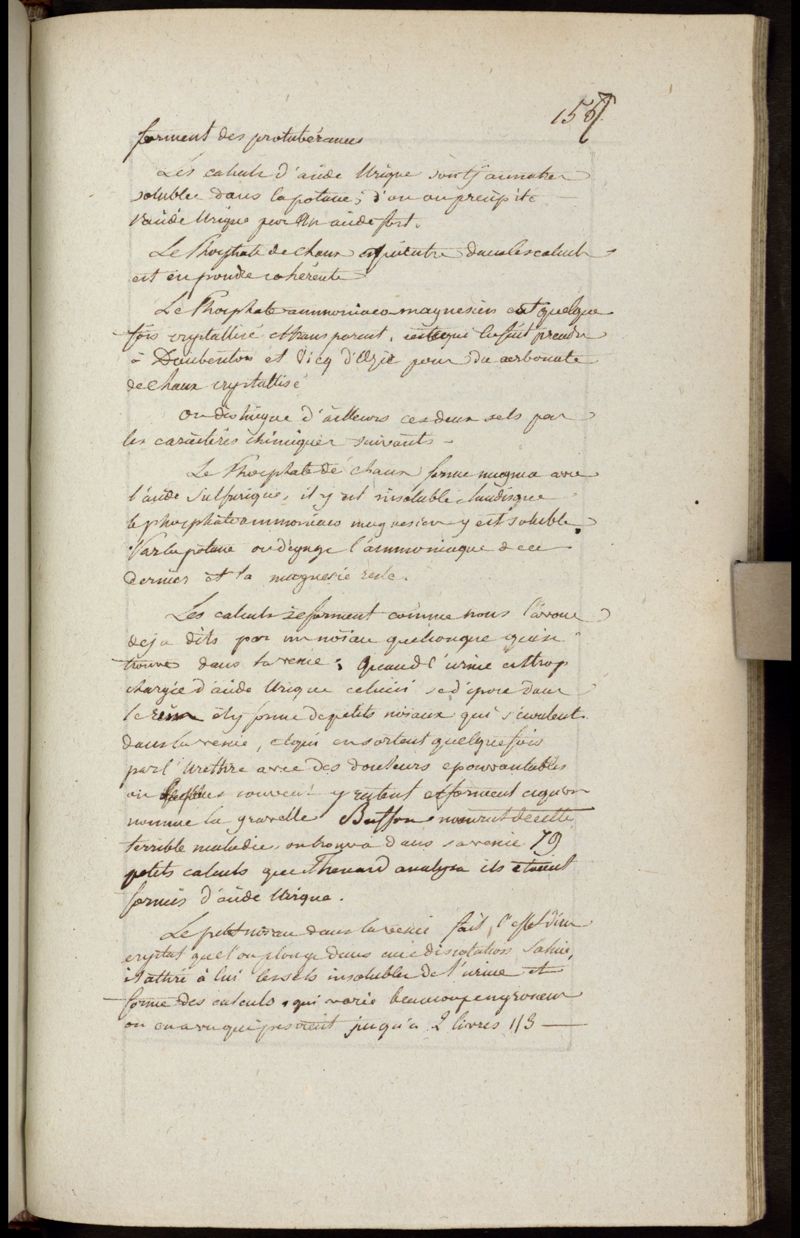 157
forment des protubérances
Les calculs d'acide Urique sont jaunatres
solubles dans la potasse, d'ou on précipite
l'acide Urique par un acide fort.
Le Phosphate de chaux qui entre dans les calculs
est en poudre cohérente
Le Phosphate ammoniaco magnesien est quelque
fois crystallisé et transparent, ce qui le fait prendre
à Daubenton et Vicq d'Azir pour du carbonate
de chaux crystallisé
On distingue d'ailleurs ces deux sels par
les caractères chimiques suivants
Le Phosphate de chaux forme magma avec
l'acide Sulfurique, il y est insoluble, tandisque
le phosphate ammoniaco magnesien y est soluble.
Par la potasse on dégage l'ammoniaque de ce
dernier et la magnesie reste.
Les calculs se forment comme nous l'avons
deja dits par un noiau quelconque qui se
trouve dans la vessie; Quand l'urine est trop
chargée d'acide Urique celuici se dépose dans
le rein il y forme de petits noiaux qui s'ecoulent
dans la vessie, et qui en sortent quelque fois
par l'Urethre avec des douleurs epouvantables
ou plus souvent y restent et forment ce qu'on
nomme la gravelle Buffon mourut de cette
terrible maladie, on trouva dans sa vessie 79
petits calculs que Thenard analysa ils etaient
formés d'acide Urique.
Le petit noiau dans la vessie fait l'effet d'un
crystal que l'on plonge dans une dissolution Saline,
il attire à lui les sels insolubles de l'urine et
forme des calculs, qui varie beaucoup en grosseur
on en a vu qui pesoient jusqu'a 2 livres 1/3